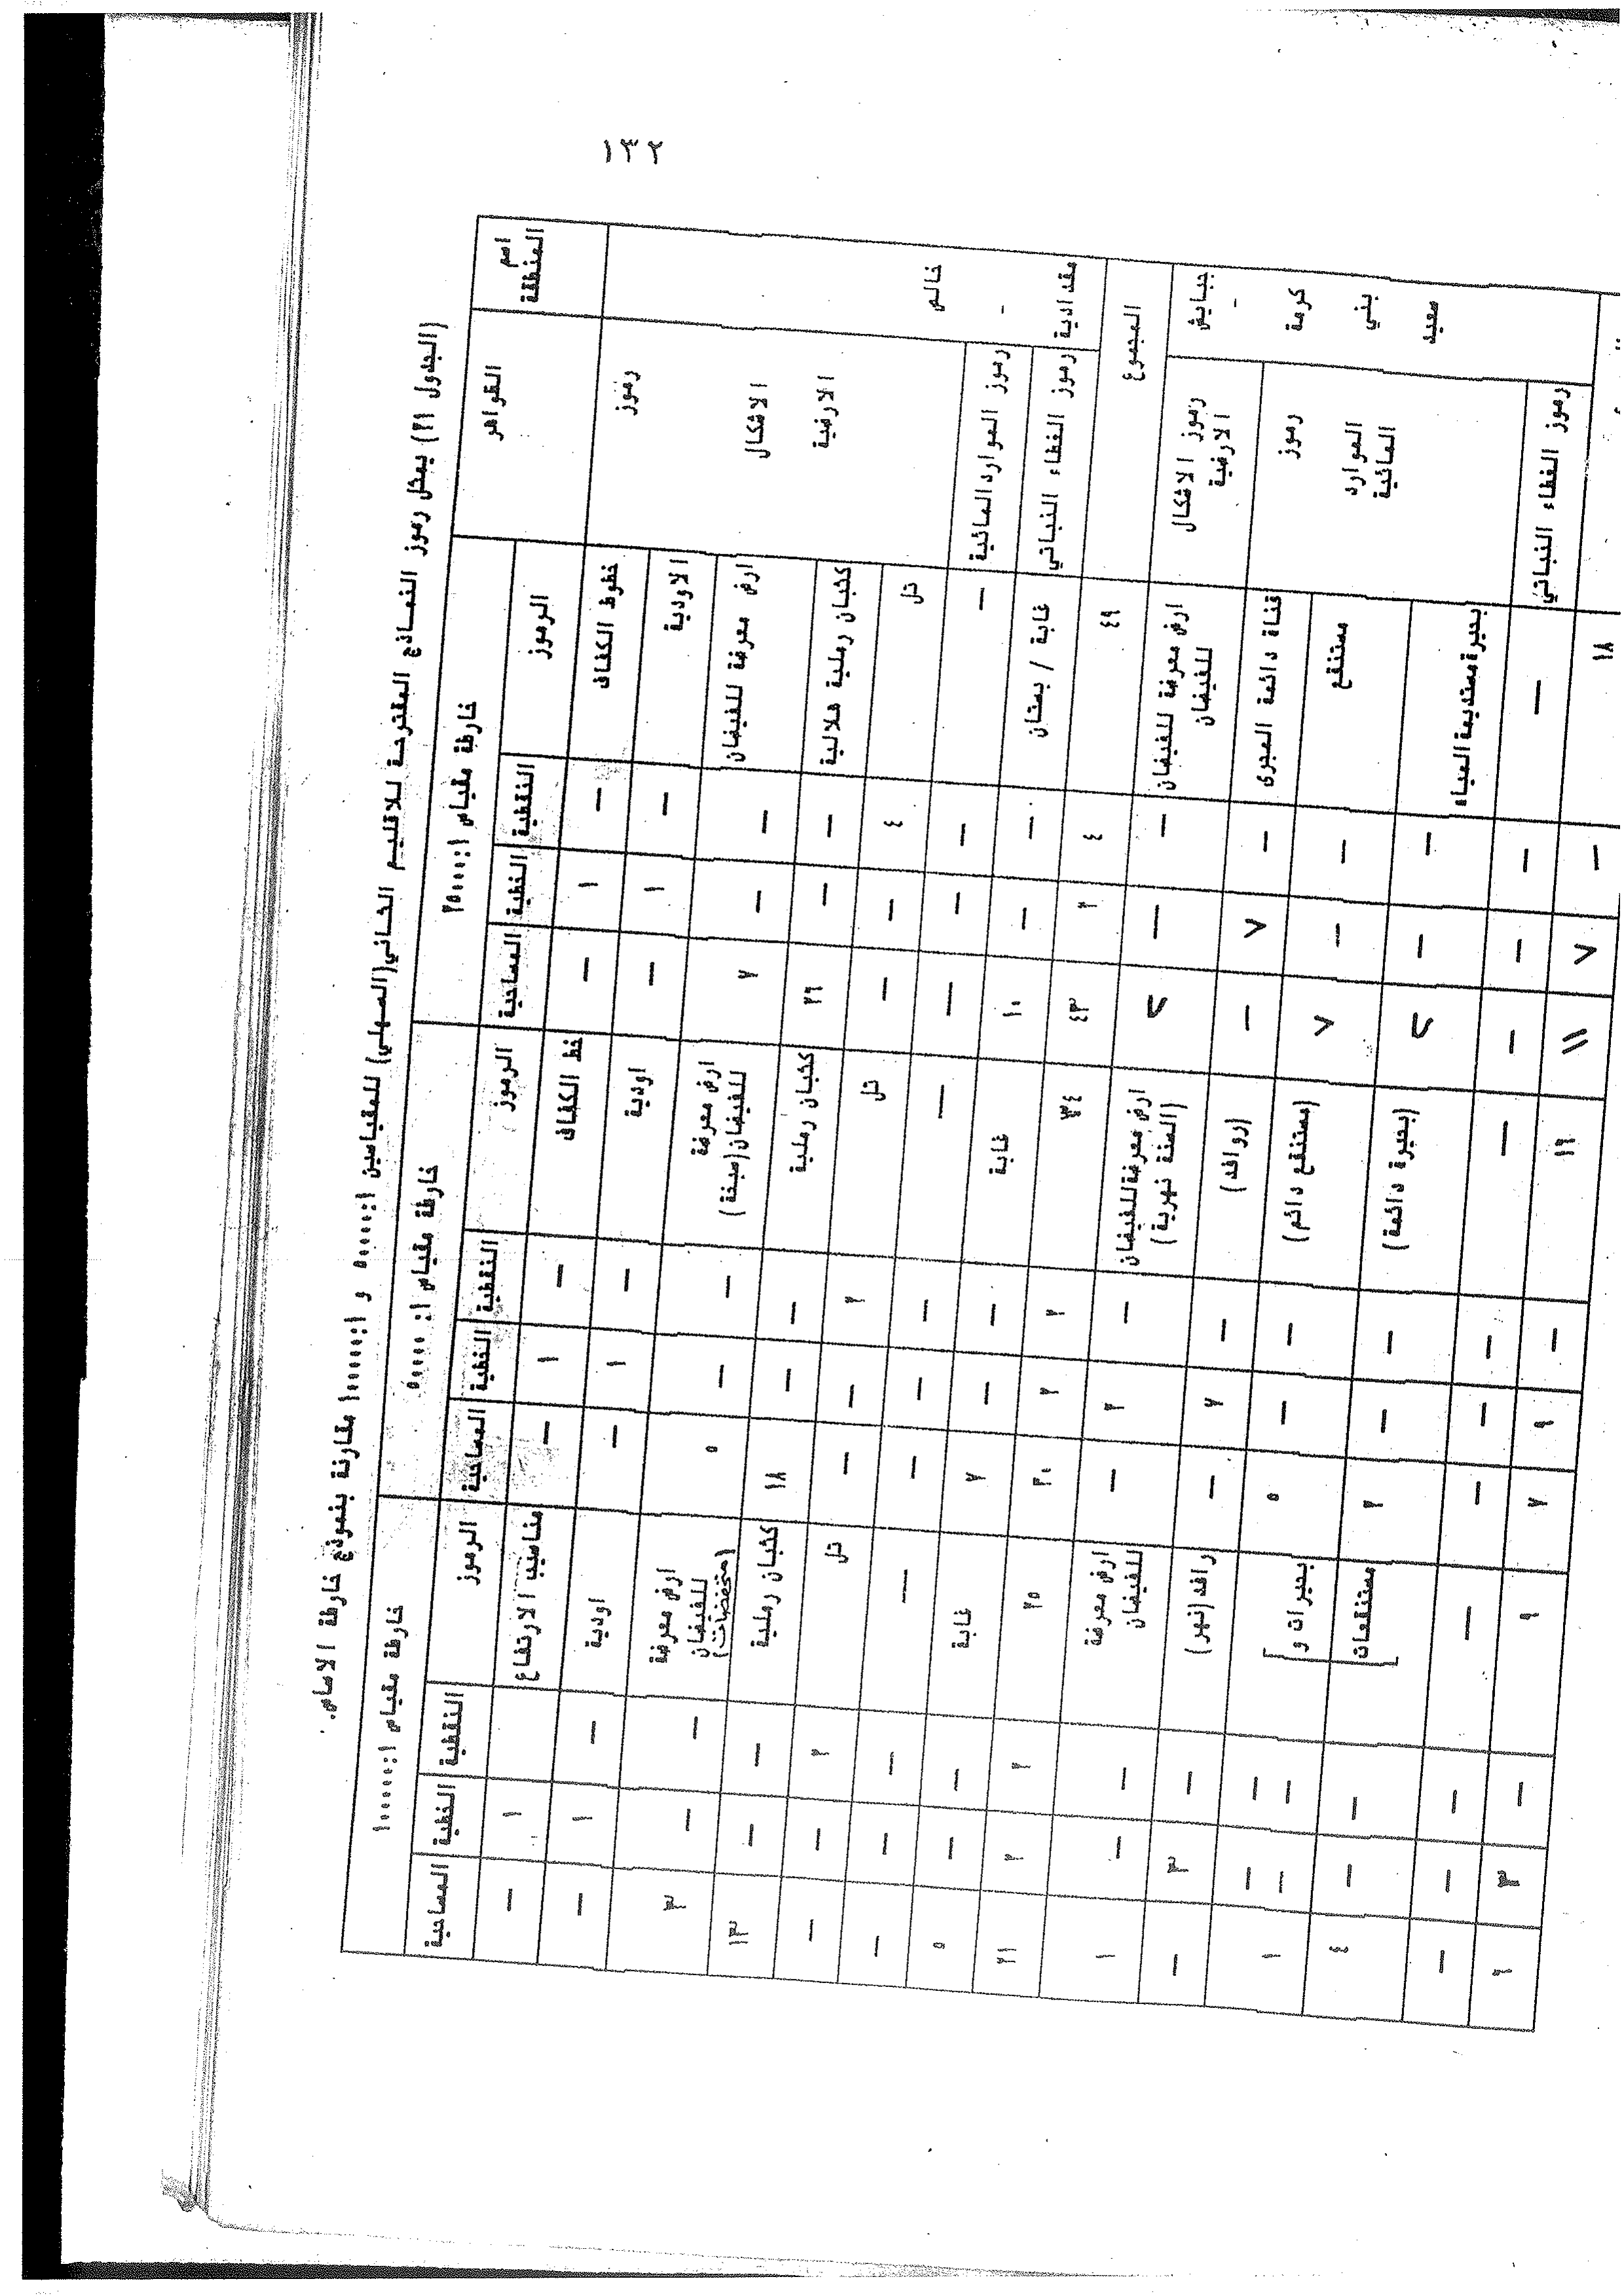 ١٣٢
(الجدول ٢١) يمثل رموز النماذج المقترحة للاقليم الثاني (السهلي) للمقياسين ١:٥٠٠٠٠ و ١:١٠٠٠٠٠ مقارنة بنموذج خارطة الاساس.
اسم المنطقة | الظواهر | خارطة مقياس ١:٢٥٠٠٠ | خارطة مقياس ١:٥٠٠٠٠ | خارطة مقياس ١:١٠٠٠٠٠
الرموز | النقطية | الخطية | المساحية | الرموز | النقطية | الخطية | المساحية | الرموز | النقطية | الخطية | المساحية
خالص - مقدادية | رموز الاشكال الارضية | خطوط الكفاف | — | ١ | — | خط الكفاف | — | ١ | — | مناسيب الارتفاع | | ١ | —
الاودية | — | ١ | — | اودية | — | ١ | — | اودية | — | ١ | —
ارض معرضة للفيضان | — | — | ٧ | ارض معرضة للفيضان (سبخة) | — | — | ٥ | ارض معرضة للفيضان (منخفضات) | — | — | ٣
كثبان رملية هلالية | — | — | ٢٦ | كثبان رملية | — | — | ١٨ | كثبان رملية | — | — | ١٣
تل | ٤ | — | — | تل | ٢ | — | — | تل | ٢ | — | —
رموز الموارد المائية | — | — | — | — | — | — | — | — | — | — | — | —
رموز الغطاء النباتي | غابة / بستان | — | — | ١٠ | غابة | — | — | ٧ | غابة | — | — | ٥
المجموع | ٤٩ | ٤ | ٢ | ٤٣ | ٣٤ | ٢ | ٢ | ٣٠ | ٢٥ | ٢ | ٢ | ٢١
جبايش - كرمة بني سعيد | رموز الاشكال الارضية | ارض معرضة للفيضان للفيضان | — | — | ٢ | ارض معرضة للفيضان (السنة نهرية) | — | ٢ | — | ارض معرضة للفيضان | — | — | ١
رموز الموارد المائية | قناة دائمة المجرى | — | ٧ | — | (روافد) | — | ٧ | — | رافد (نهر) | — | ٣ | —
مستنقع | — | — | ٧ | (مستنقع دائم) | — | — | ٥ | [بحيرات و] | — — | — — | ١
بحيرة مستديمة المياه | — | — | ٢ | (بحيرة دائمة) | — | — | ٢ | [مستنقعات] | — | — | ٤
رموز الغطاء النباتي | — | — | — | — | — | — | — | — | — | — | — | —
١٨ | — | ٧ | ١١ | ١٦ | — | ٩ | ٧ | ٩ | — | ٣ | ٦